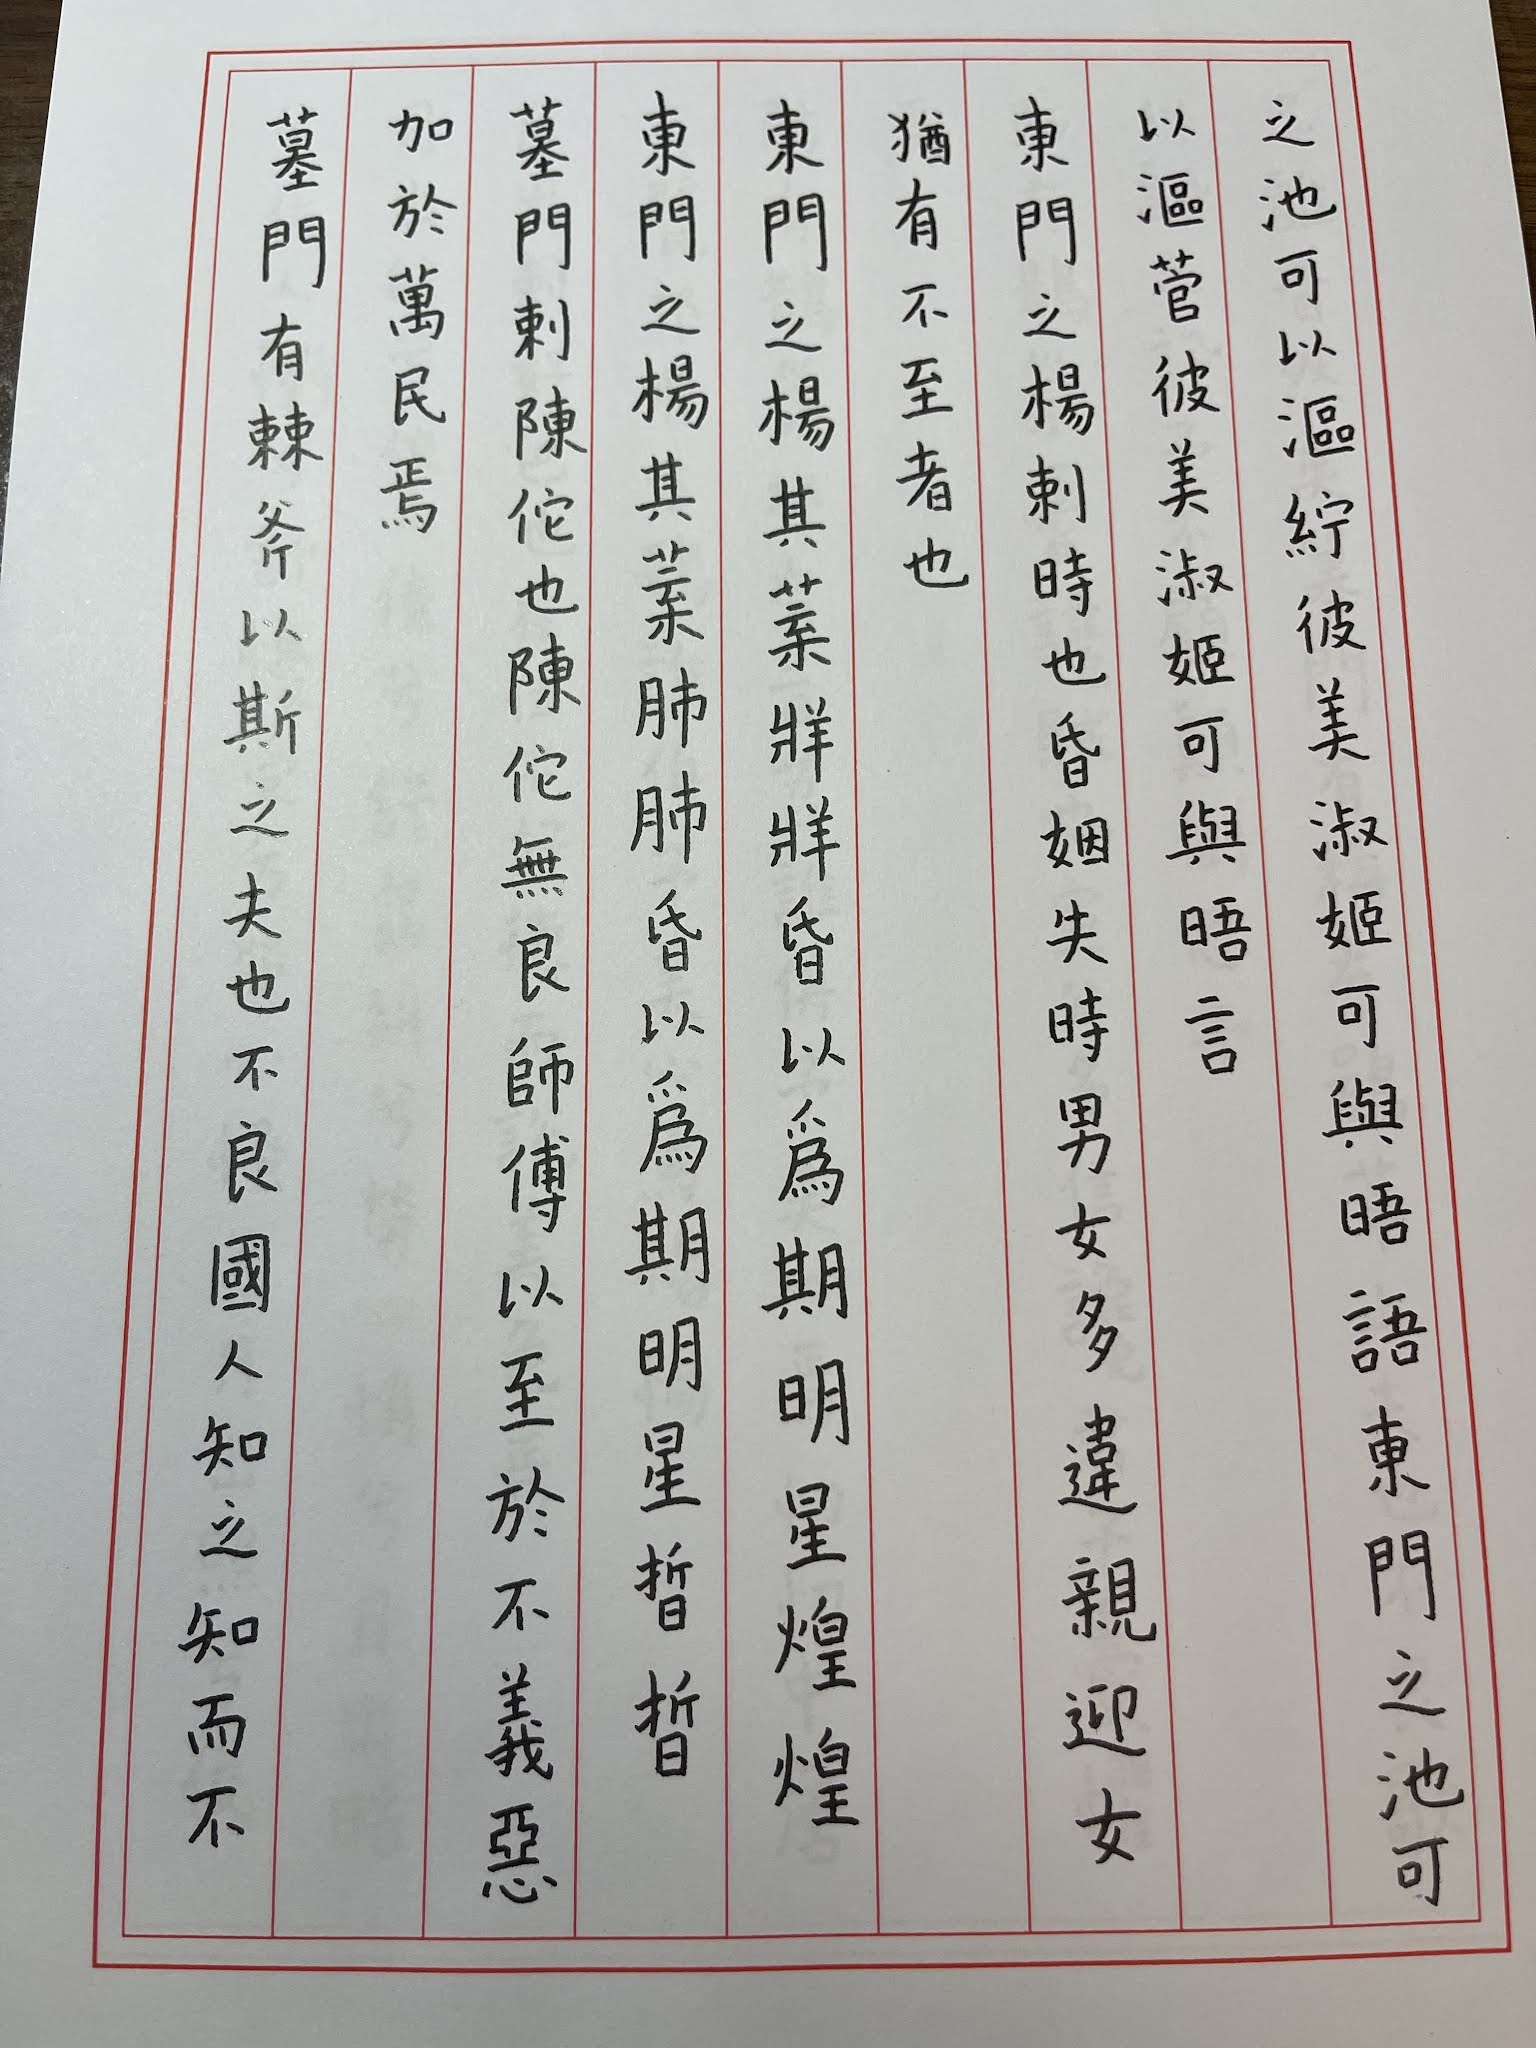 之池可以漚紵彼美淑姬可與晤語東門之池可
以漚菅彼美淑姬可與晤言
東門之楊刺時也昏姻失時男女多違親迎女
猶有不至者也
東門之楊其葉牂牂昏以爲期明星煌煌
東門之楊其葉肺肺昏以爲期明星晢晢
墓門刺陳佗也陳佗無良師傅以至於不義惡
加於萬民焉
墓門有棘斧以斯之夫也不良國人知之知而不